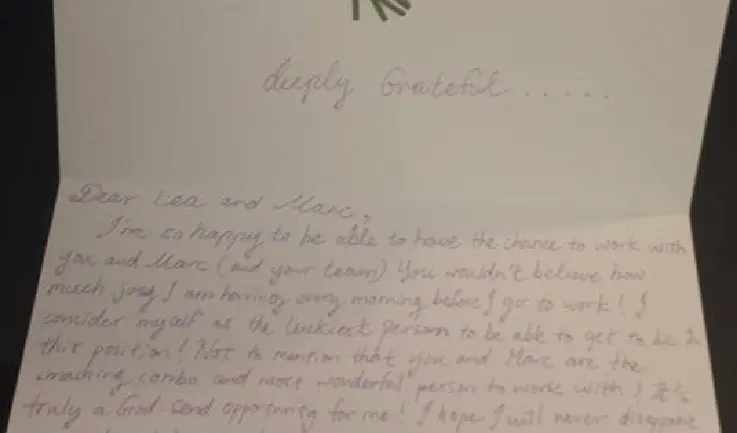 deeply Grateful......
Dear Lea and Marc,
I'm so happy to be able to have the chance to work with
you and Marc (and your team) You wouldn't believe how
much joy I am having every morning before I go to work! I
consider myself as the luckiest person to be able to get to be in
this position! Not to mention that you and Marc are the
smaching combo and most wonderful person to work with! It's
truly a God-send opportunity for me! I hope I will never disappoint